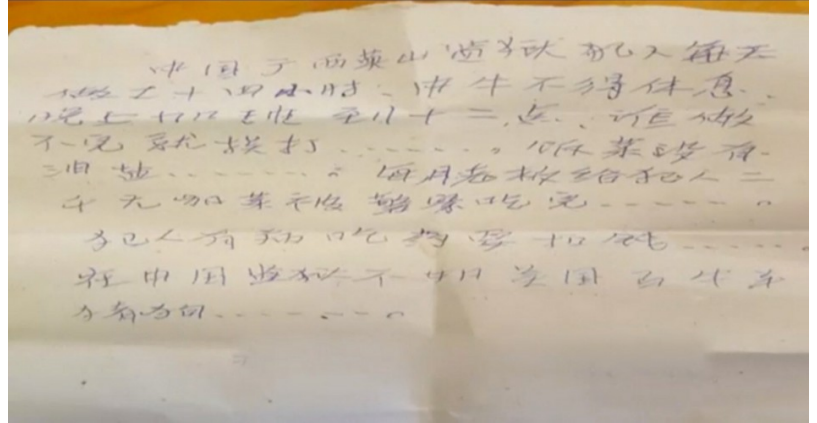 中国广西英山监狱犯人每天
做工十四小时、中午不得休息、
晚上加班到十二点、谁做
不完就挨打........。吃菜没有
油盐........。每月老板给犯人二
千元加菜被警察吃完........。
犯人有病吃药要扣钱........。
在中国监狱不如美国